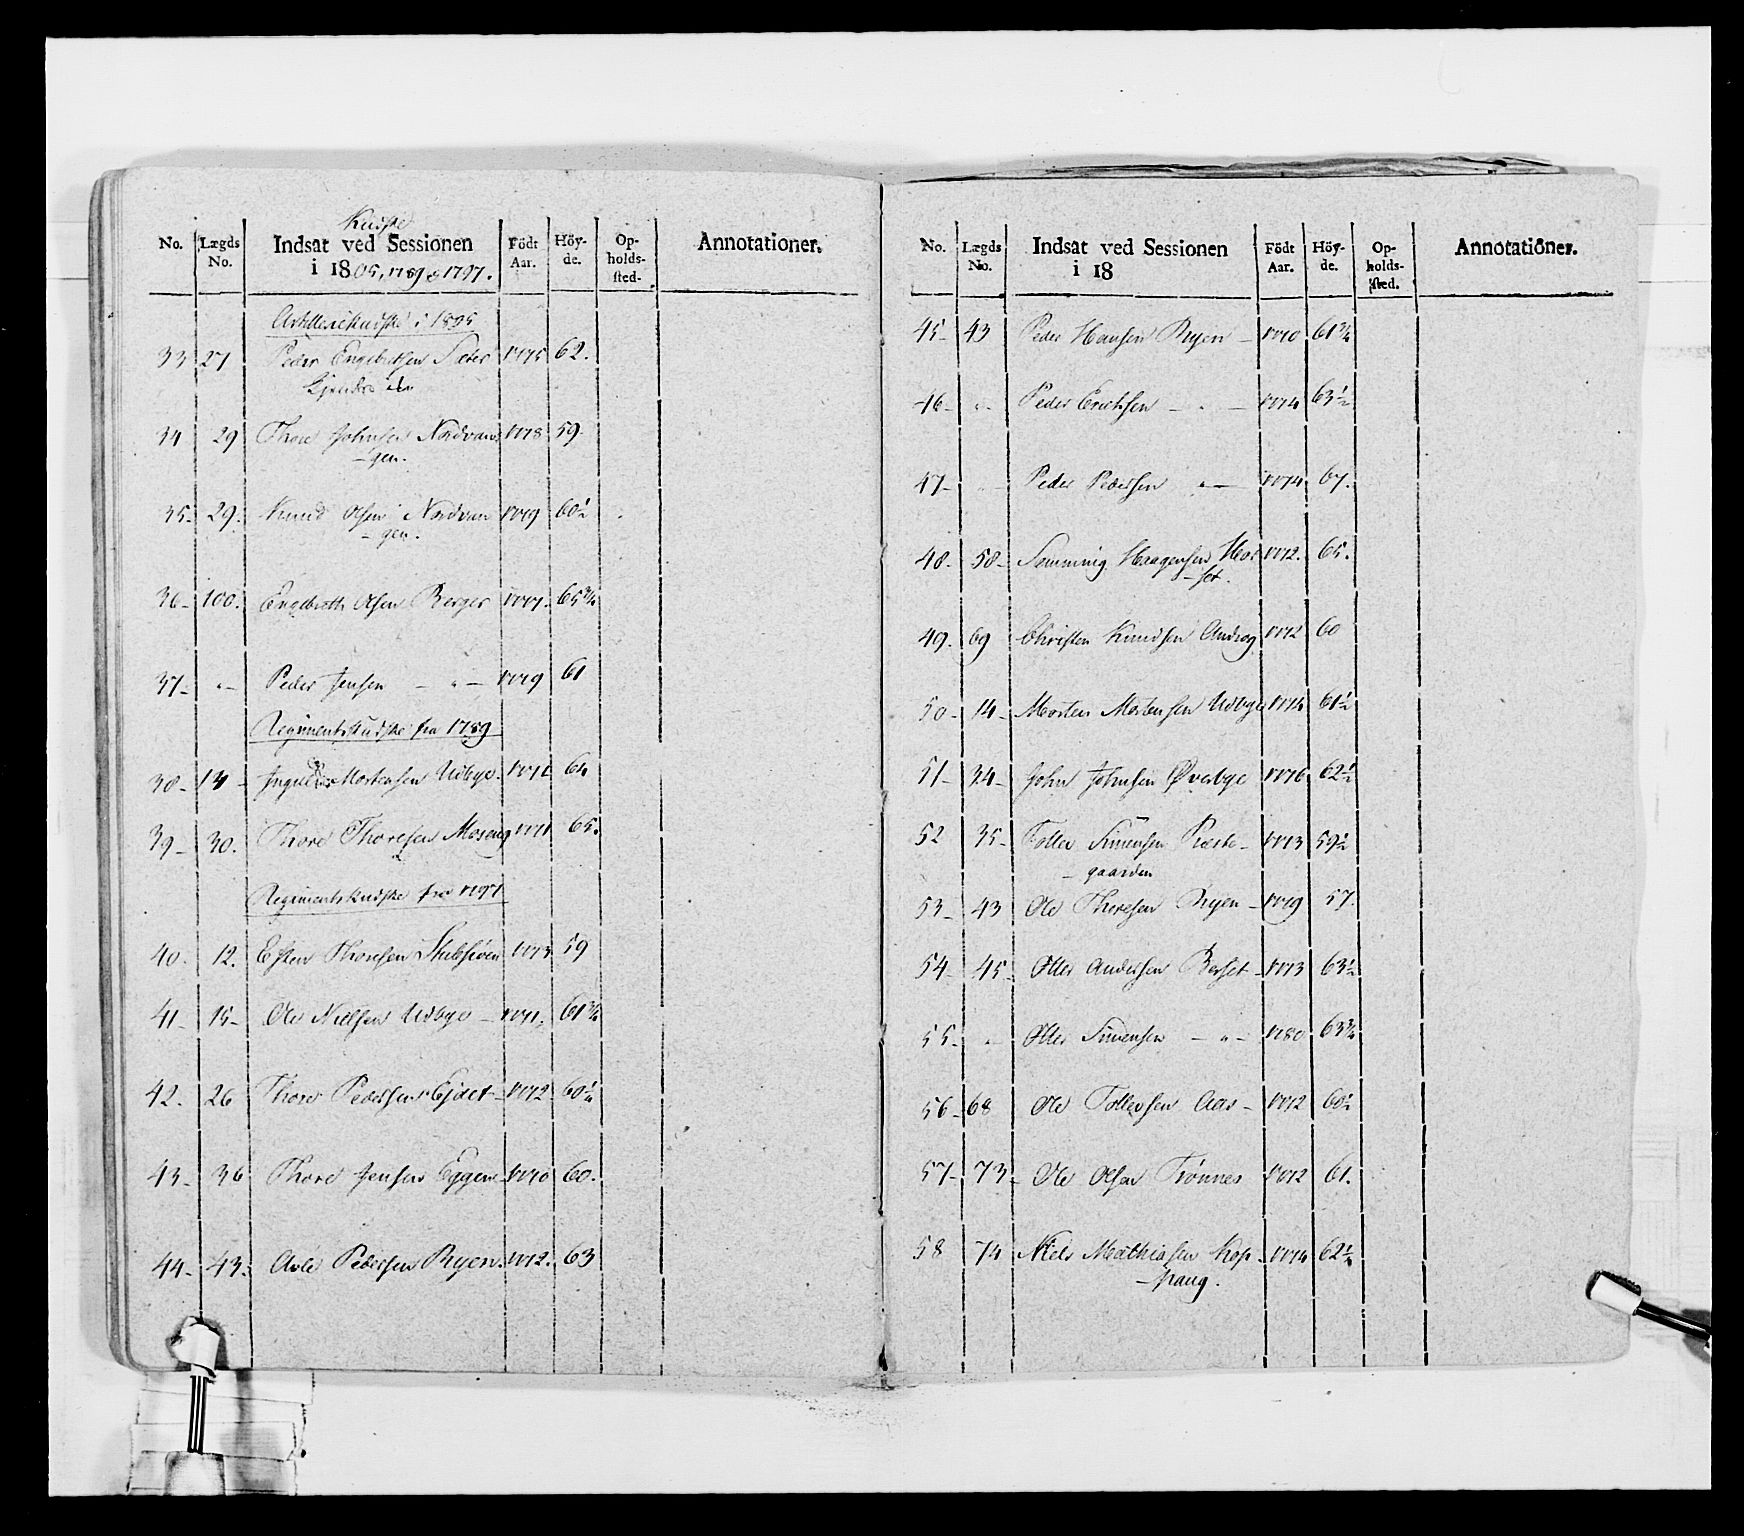 Kudske
No. Lægds No. Indsat ved Sessionen i 1805, 1789 & 1797. Födt Aar. Höyde. Opholdssted. Annotationer.
Artilleriekudske i 1805
33 27 Peder Engebretsen Sæter 1775 62.
34 29 Thore Johnsen Nordvan 1778 59.
-gen.
35. 29. Knud Olsen Nordvan 1779 60½
-gen.
36- 100. Engebreth Olsen Berger 1777. 65¾
37- "- Peder Jensen - " - 1779 61
Regimentskudske fra 1789
38- 14 - Mortensen Udbye. 64
39- 30. Thore Thoresen Moseng 1771 65.
Regimentskudske fra 1797
40. 12. Esten Thoresen 1773 59
41- 15- Ole Nielsen Udbye - 1771. 61¾
42. 26 Thore Pedersen 1772 60½
43- 36 Thore Jensen Eggen - 1770 60.
44- 43. Pedersen Ryen. 1772. 63
No. Lægds No. Indsat ved Sessionen i 18 Födt Aar. Höyde. Opholdssted. Annotationer.
45- 43 Peder Hansen Ryen - 1770 61¾
46- "- Peder Erichsen - " - 1774 63½
47- "- Peder Pedersen " - 1774 67.
48- 58- Semming Haagensen Hor 1772. 65.
-set.
49. 69 Christen Knudsen 1772 60
50- 14- Morten Mortensen Udbye 1774 61½
51- 34- John Johnsen Øverbye 1776 62½
52 35- Toller Simensen Præste- 1773 59½
-gaarden
53- 43 Ole Thoresen Ryen - 1779 57.
54- 45- Otter Andersen Berset - 1773 63½
55- "- Otter Simensen - " - 1780 63¾
56- 68 Ole Tollevsen Aas - 1772 60½
57- 73- Ole Olsen Trønnes 1772 61.
58 74 Niels Mathiasen Kop- 1774 62½
-pang.